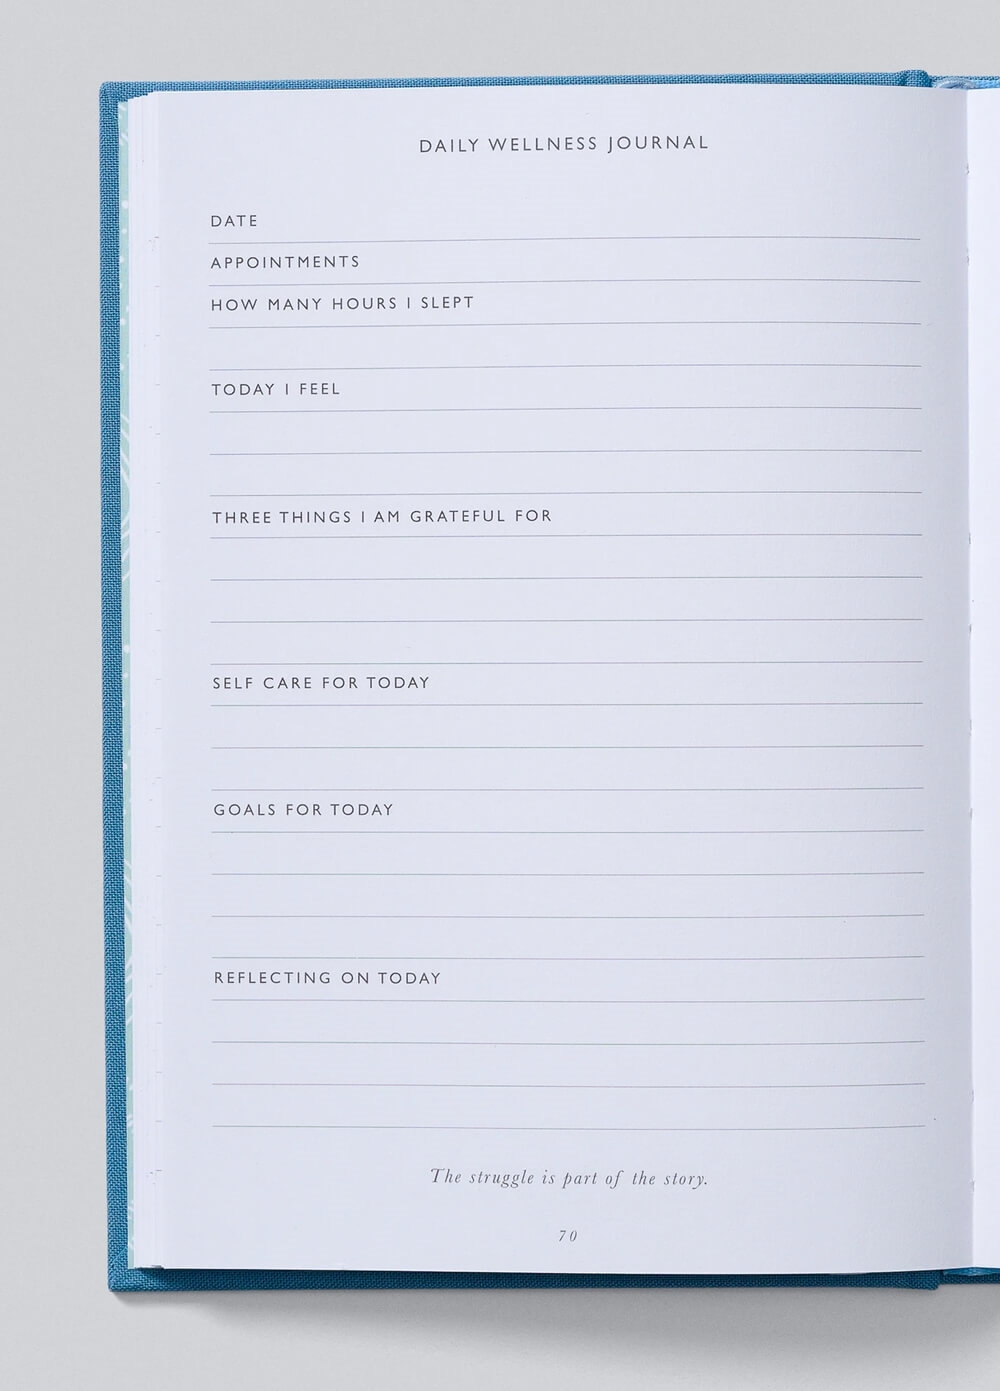 DAILY WELLNESS JOURNAL
DATE
APPOINTMENTS
HOW MANY HOURS I SLEPT
TODAY I FEEL
THREE THINGS I AM GRATEFUL FOR
SELF CARE FOR TODAY
GOALS FOR TODAY
REFLECTING ON TODAY
The struggle is part of the story.
70